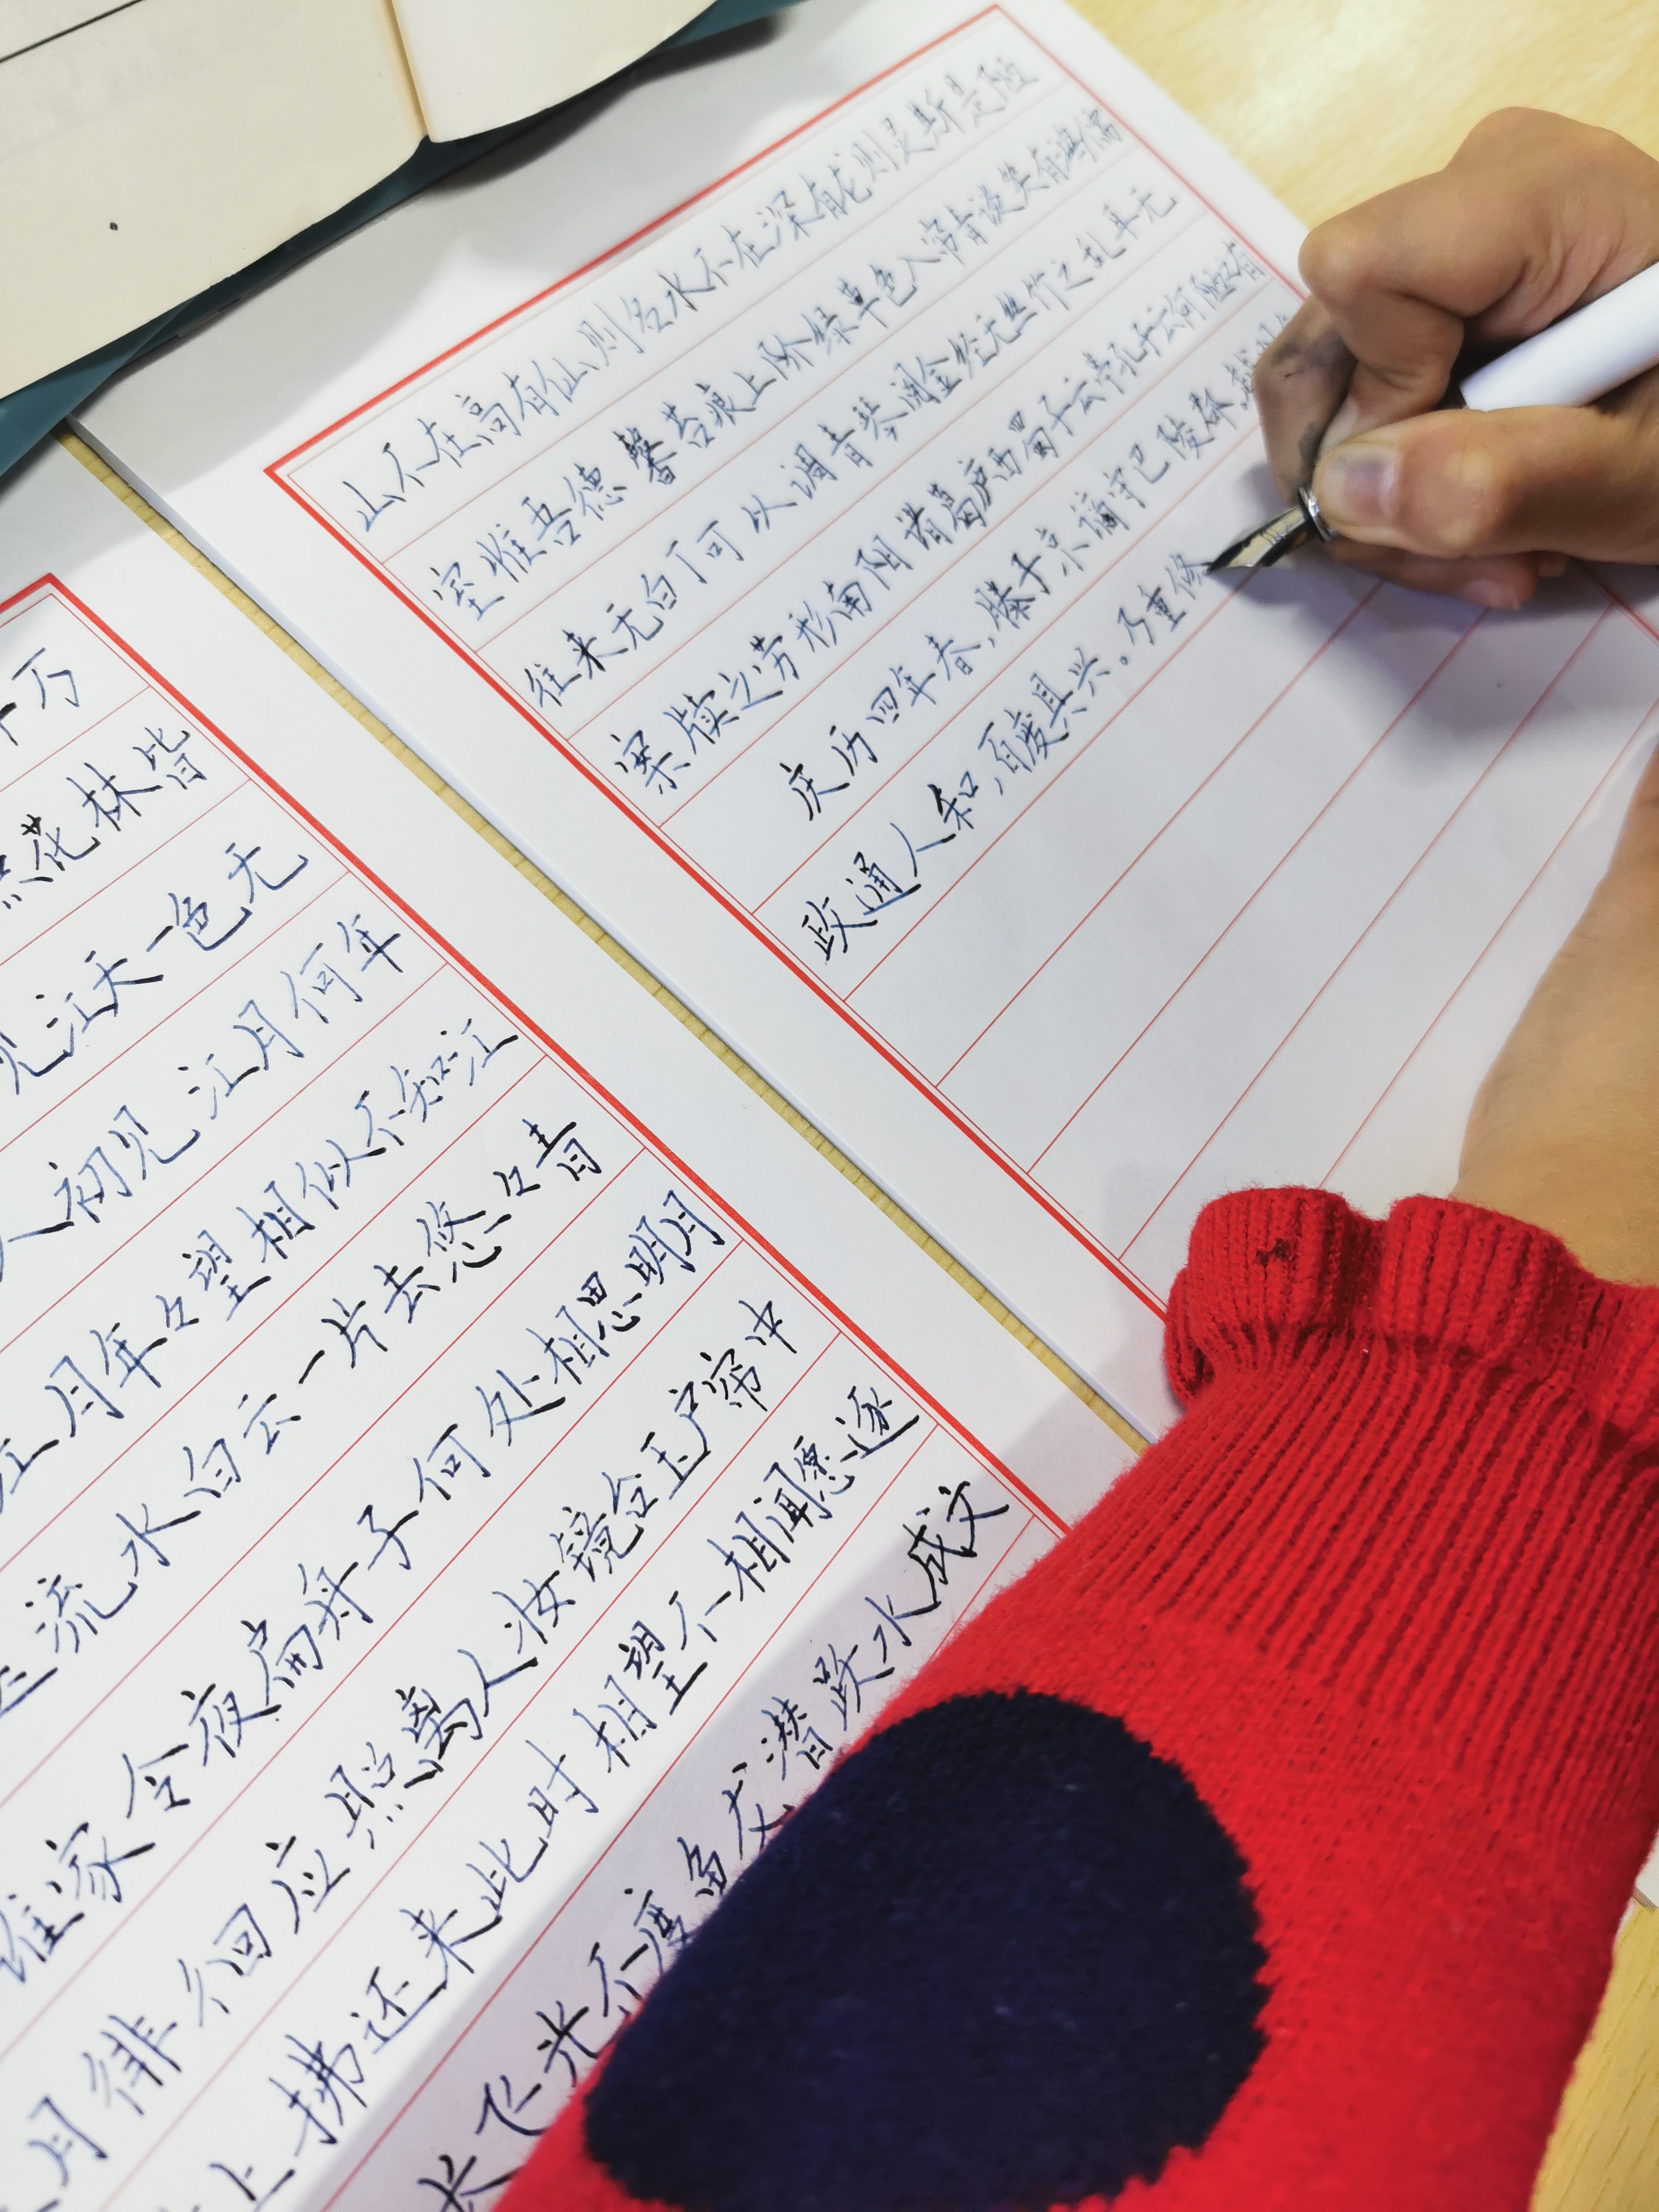 山不在高有仙则名水不在深有龙则灵斯是陋
室惟吾德馨苔痕上阶绿草色入帘青谈笑有鸿儒
往来无白丁可以调青琴阅金经无丝竹之乱耳无
案牍之劳形南阳诸葛庐西蜀子云亭孔子云何陋之有
庆历四年春,滕子京谪守巴陵郡越明
政通人和,百废具兴。乃重修
千万
花林皆
江天一色无
人初见江月何年
江月年々望相似不知江
流水白云一片去悠々青
谁家今夜扁舟子何处相思明月
月徘徊应照离人妆镜台玉户帘中
上拂还来此时相望不相闻愿逐
长飞光不度鱼龙潜跃水成文